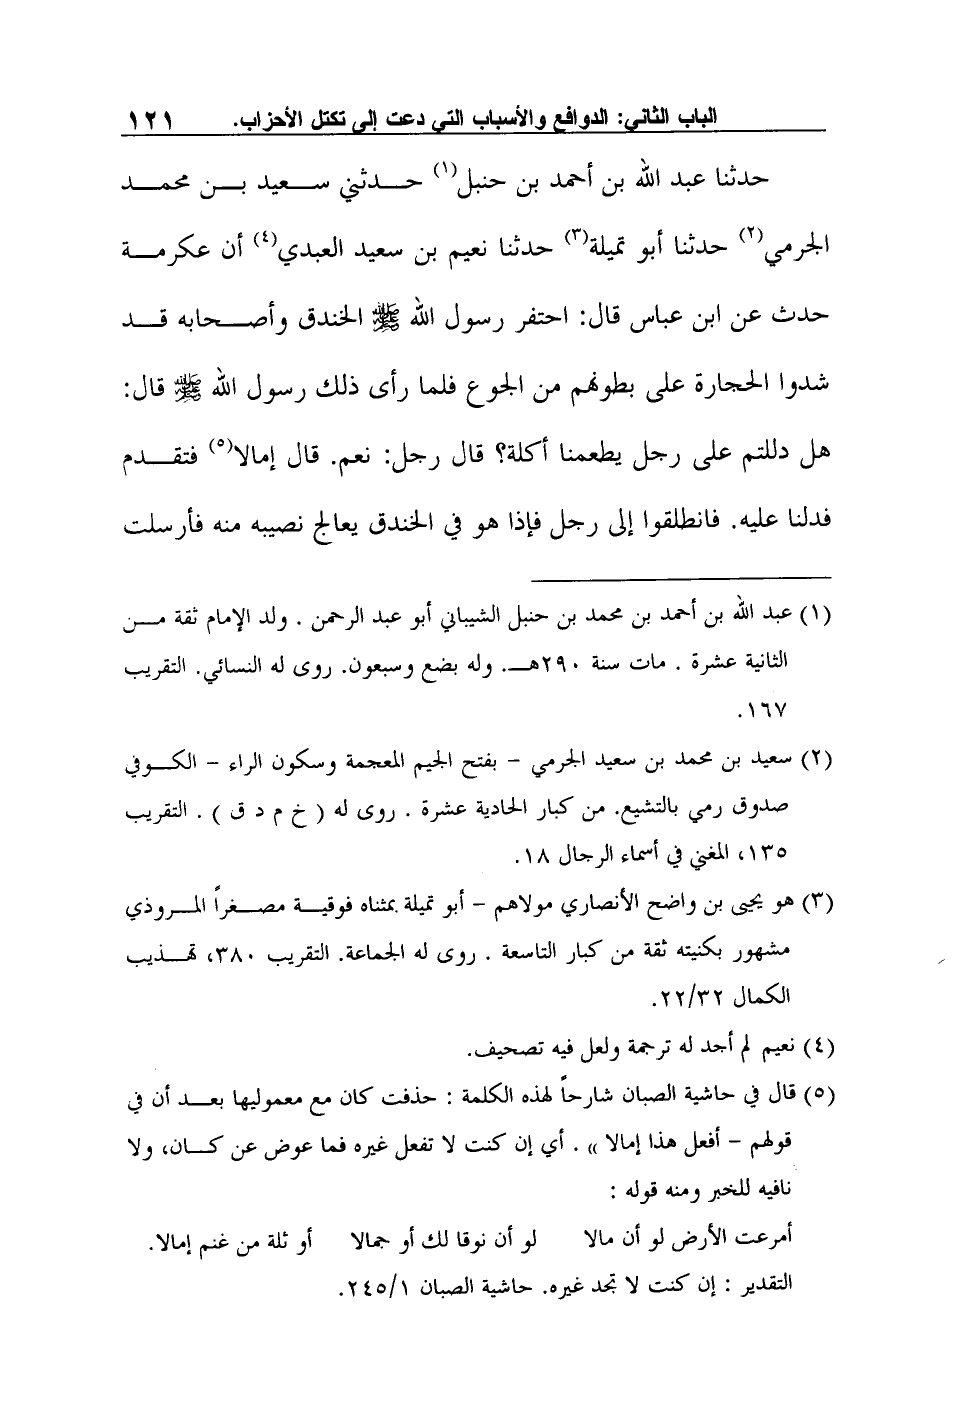 الباب الثاني: الدوافع والأسباب التي دعت إلى تكتل الأحزاب. ١٢١
حدثنا عبد الله بن أحمد بن حنبل(١) حـــدثني ســـعيد بـــن محمـــد
الجرمي(٢) حدثنا أبو تميلة(٣) حدثنا نعيم بن سعيد العبدي(٤) أن عكرمـــة
حدث عن ابن عباس قال: احتفر رسول الله ﷺ الخندق وأصـــحابه قـــد
شدوا الحجارة على بطونهم من الجوع فلما رأى ذلك رسول الله ﷺ قال:
هل دللتم على رجل يطعمنا أكلة؟ قال رجل: نعم. قال إمالا(٥) فتقـــدم
فدلنا عليه. فانطلقوا إلى رجل فإذا هو في الخندق يعالج نصيبه منه فأرسلت
(١) عبد الله بن أحمد بن محمد بن حنبل الشيباني أبو عبد الرحمن . ولد الإمام ثقة مـــن
الثانية عشرة . مات سنة ٢٩٠هـــ. وله بضع وسبعون. روى له النسائي. التقريب
١٦٧.
(٢) سعيد بن محمد بن سعيد الجرمي – بفتح الجيم المعجمة وسكون الراء – الكـــوفي
صدوق رمي بالتشيع. من كبار الحادية عشرة . روى له ( خ م د ق ) . التقريب
١٣٥، المغني في أسماء الرجال ١٨.
(٣) هو يحيى بن واضح الأنصاري مولاهم – أبو تميلة بمثناه فوقيـــة مصـــغراً المـــروذي
مشهور بكنيته ثقة من كبار التاسعة . روى له الجماعة. التقريب ٣٨٠، تهـــذيب
الكمال ٢٢/٣٢.
(٤) نعيم لم أجد له ترجمة ولعل فيه تصحيف.
(٥) قال في حاشية الصبان شارحاً لهذه الكلمة : حذفت كان مع معموليها بعـــد أن في
قولهم – أفعل هذا إمالا )) . أي إن كنت لا تفعل غيره فما عوض عن كـــان، ولا
نافيه للخبر ومنه قوله :
أمرعت الأرض لو أن مالا لو أن نوقا لك أو جمالا أو ثلة من غنم إمالا.
التقدير : إن كنت لا تجد غيره. حاشية الصبان ٢٤٥/١.